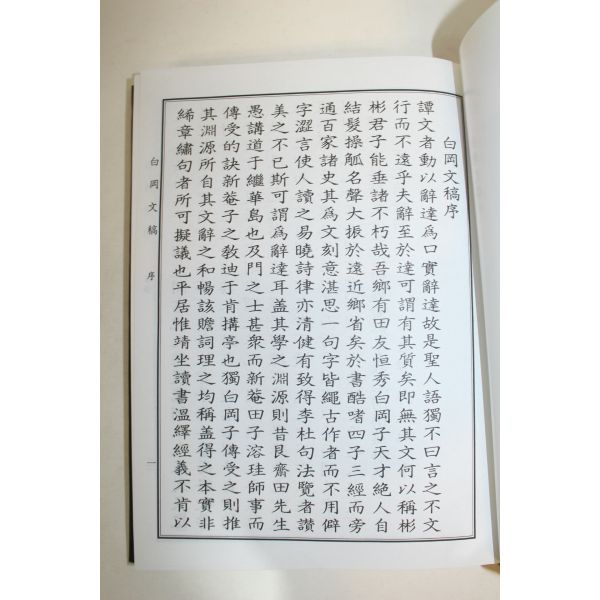 白岡文稿序
譚文者動以辭達爲口實辭達故是聖人語獨不曰言之不文
行而不遠乎夫辭至於達可謂有其質矣即無其文何以稱彬
彬君子能垂諸不朽哉吾鄉有田友恒秀白岡子天才絶人自
結髮操觚名聲大振於遠近鄉省矣於書酷嗜四子三經而旁
通百家諸史其爲文刻意湛思一句字皆繩古作者而不用僻
字澀言使人讀之易曉詩律亦清健有致得李杜句法覽者讚
美之不已斯可謂爲辭達耳盖其學之淵源則昔艮齋田先生
愚講道于繼華島也及門之士甚衆而新菴田子溶珪師事而
傳受的訣新菴子之敎迪于肯搆亭也獨白岡子傳受之則推
其淵源所自其文辭之和暢該贍詞理之均稱盖得之本實非
絺章繡句者所可擬議也平居惟靖坐讀書溫繹經義不肯以
白岡文稿 序
一